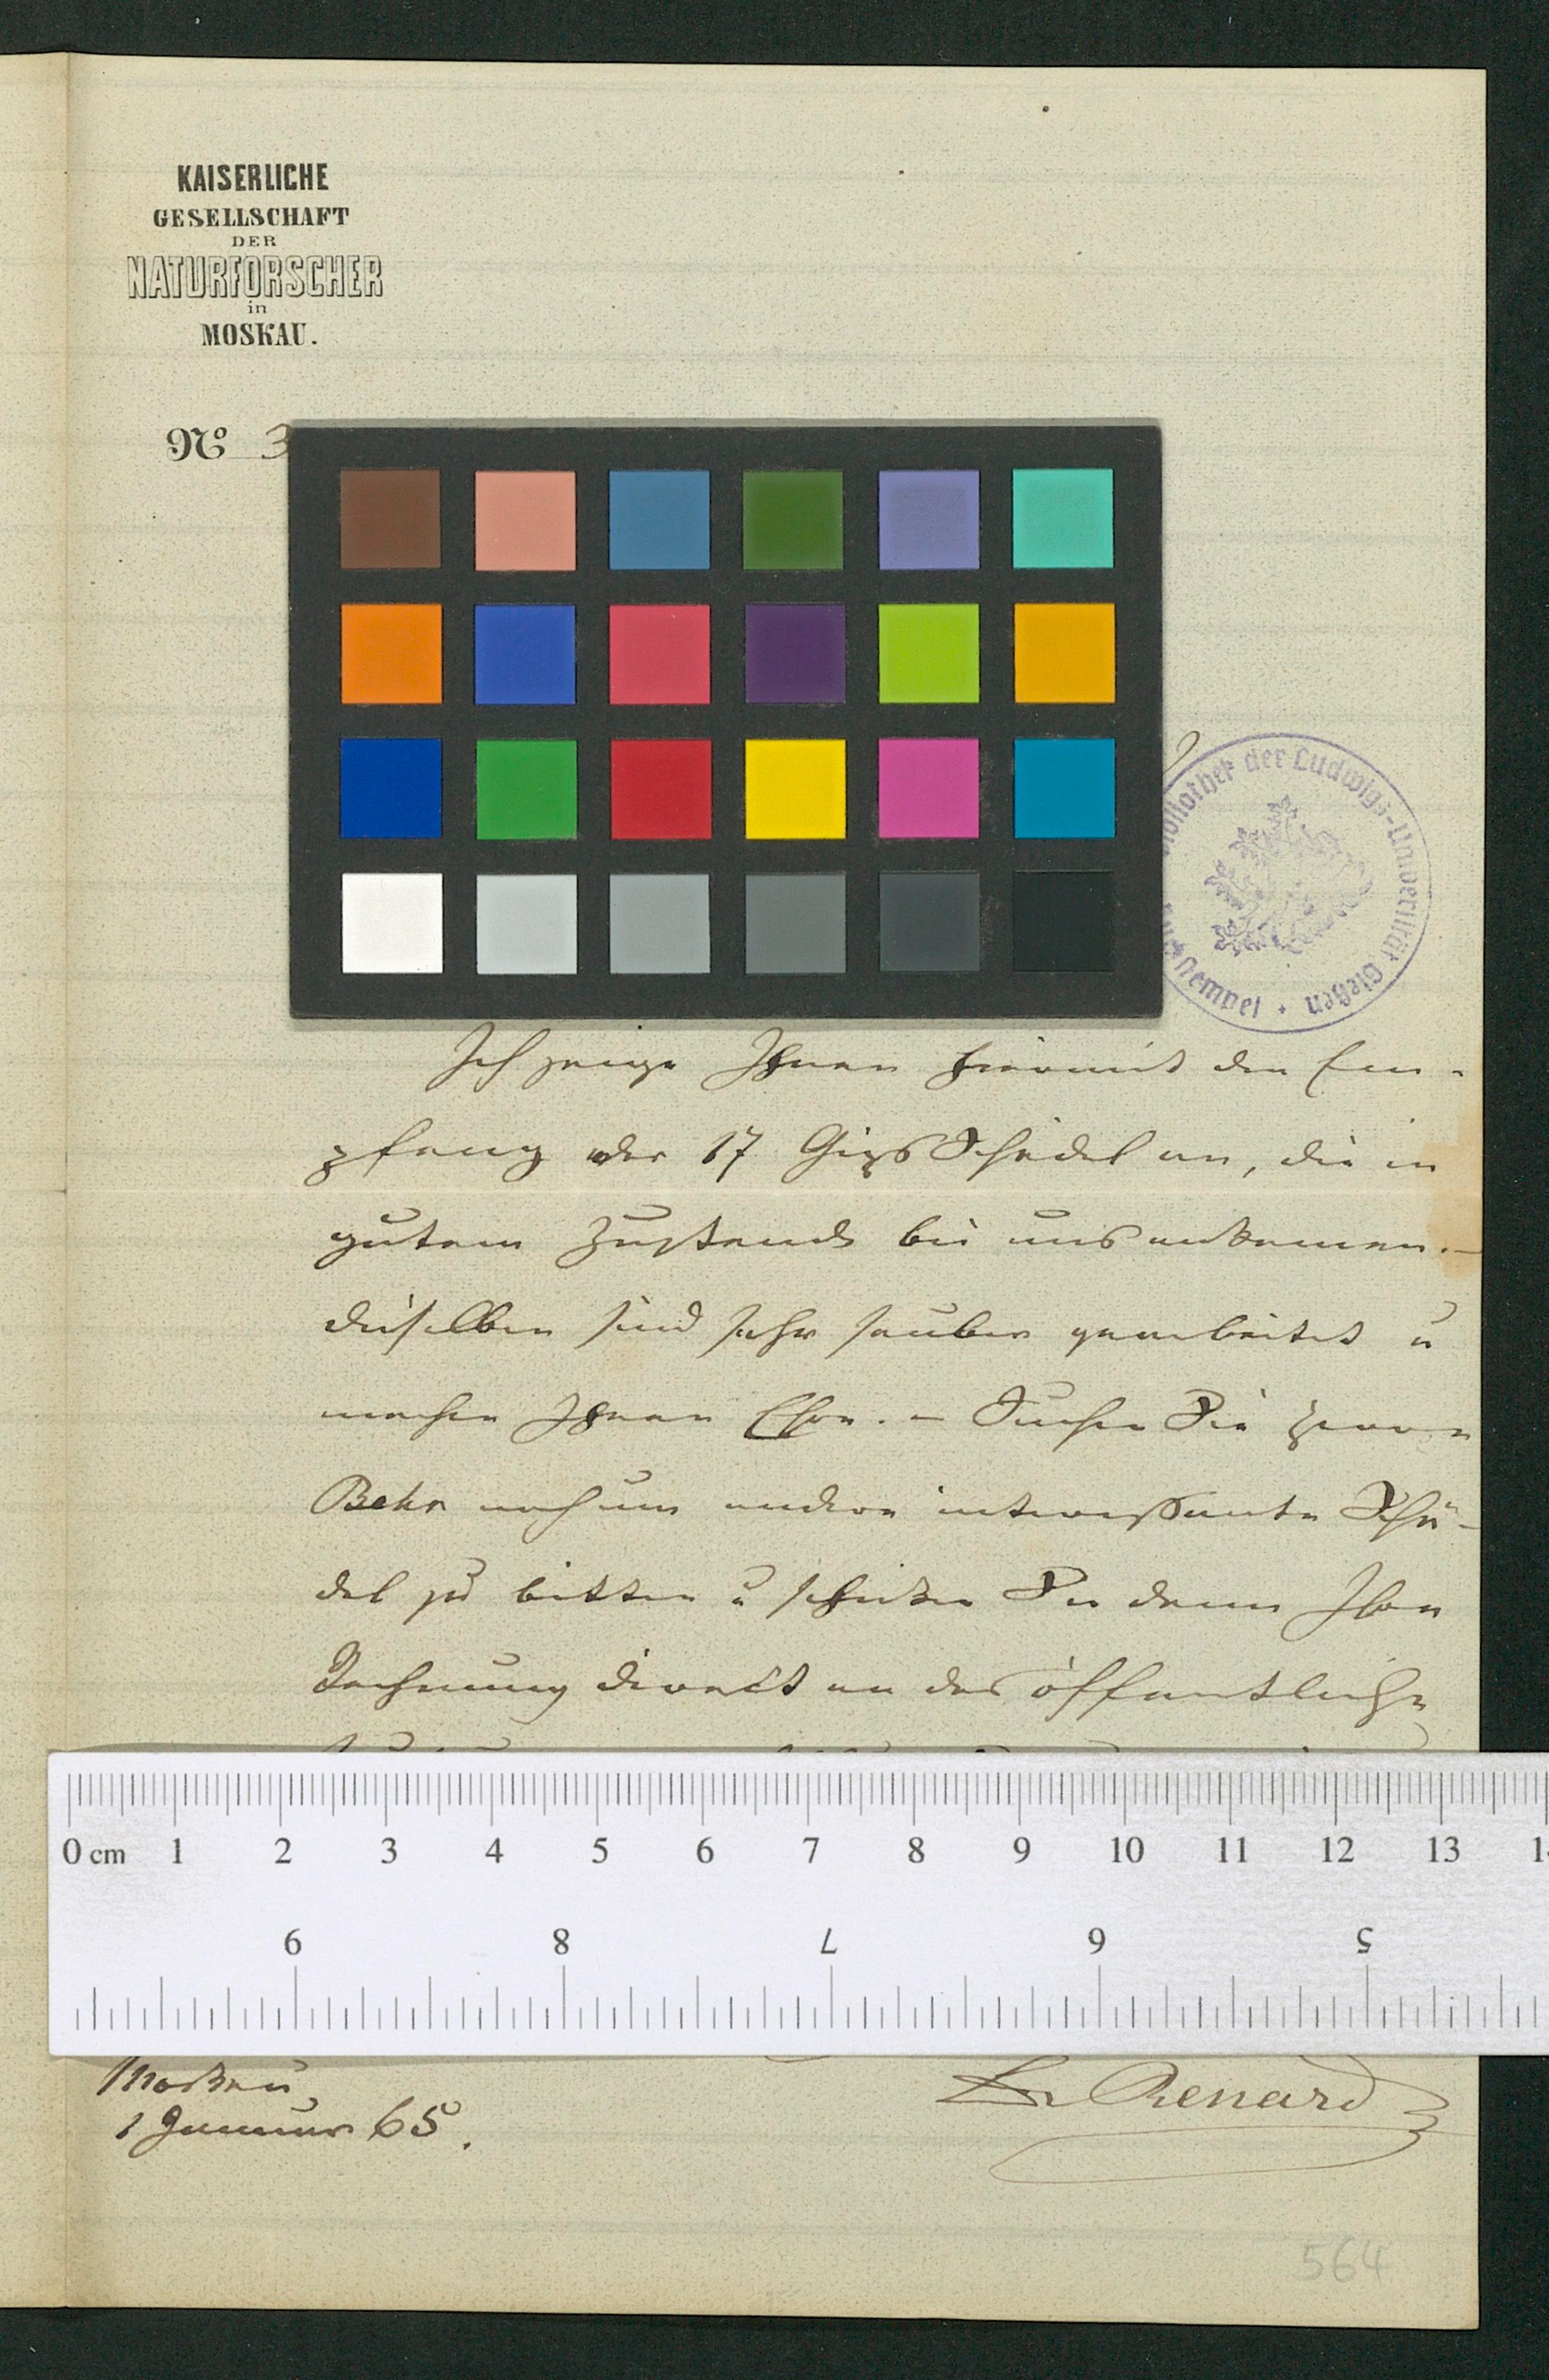 KAISERLICHE
GESELLSCHAFT
DER
NATURFORSCHER
in
MOSKAU.
№ 3
bibliothek der Ludwigs-Universität Gießen
Stempel
Ich zeige Ihnen hiermit den Em-
pfang der 17 Gips Schädel an, die in
gutem Zustande bei uns ankamen.—
dieselben sind sehr sauber gearbeitet u
machen Ihnen Ehre. — Suchen Sie Herrn
Behr noch um andere interessante Schä-
del zu bitten u schicken Sie dann Ihre
Rechnung direct an das öffentliche
0 cm 1 2 3 4 5 6 7 8 9 10 11 12 13
9 8 7 6 5
Moskau,
1 Januar 65.
Dr Renard
564